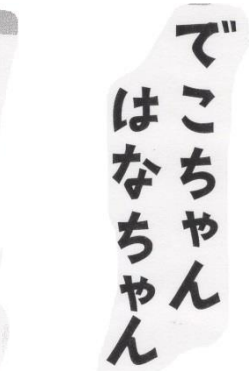 でこちゃん
はなちゃん